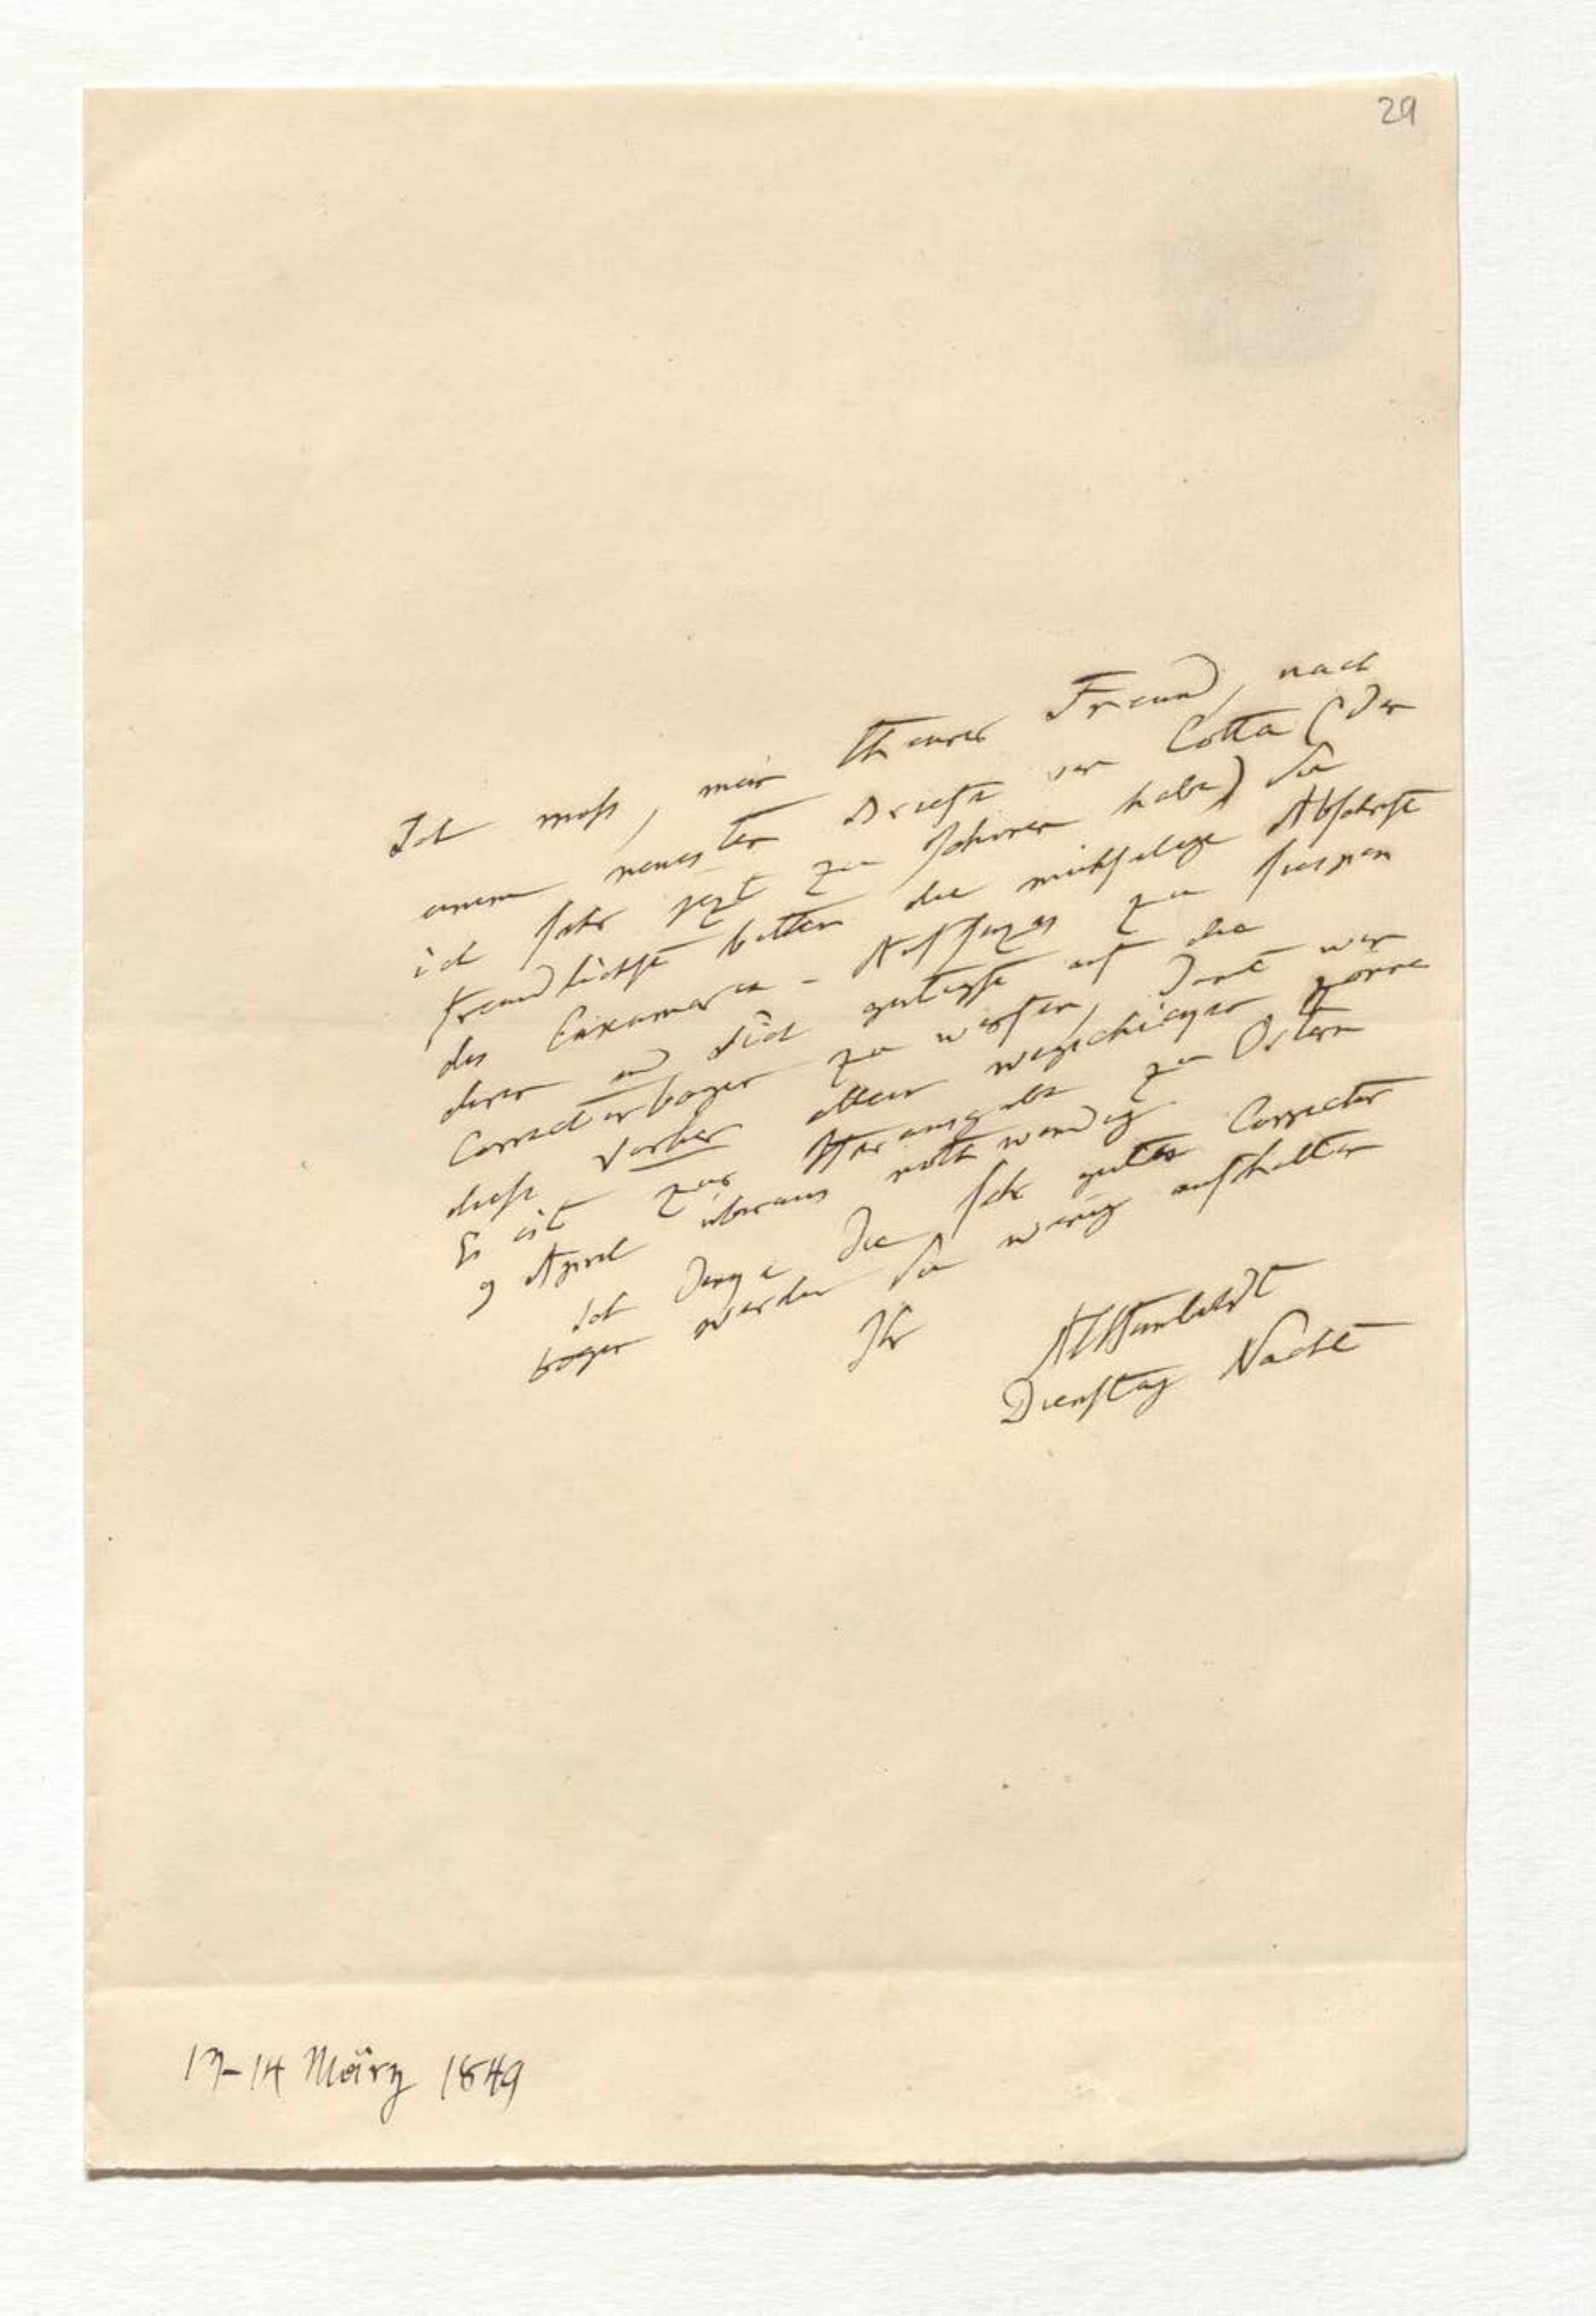 29
Ich muß, mein theurer Freund, nach
einem neuesten Briefe von Cotta (den
ich sehr jezt zu schonen habe) Sie
freundlichst bitten die mühselige Abschrift
des Caxamarca-Aufsazes zu
diren und Sich gütigst auf die
Correcturbogen zu werfen, damit wir
diese vorher allein wegschicken können
Es ist zur Herausgabe zu Ostern
9 April überaus nothwendig.
Ich denke die sehr guten Correctur
bogen werden Sie wenig aufhalten
Ihr
AlHumboldt
Dienstag Nacht
13-14 März 1849